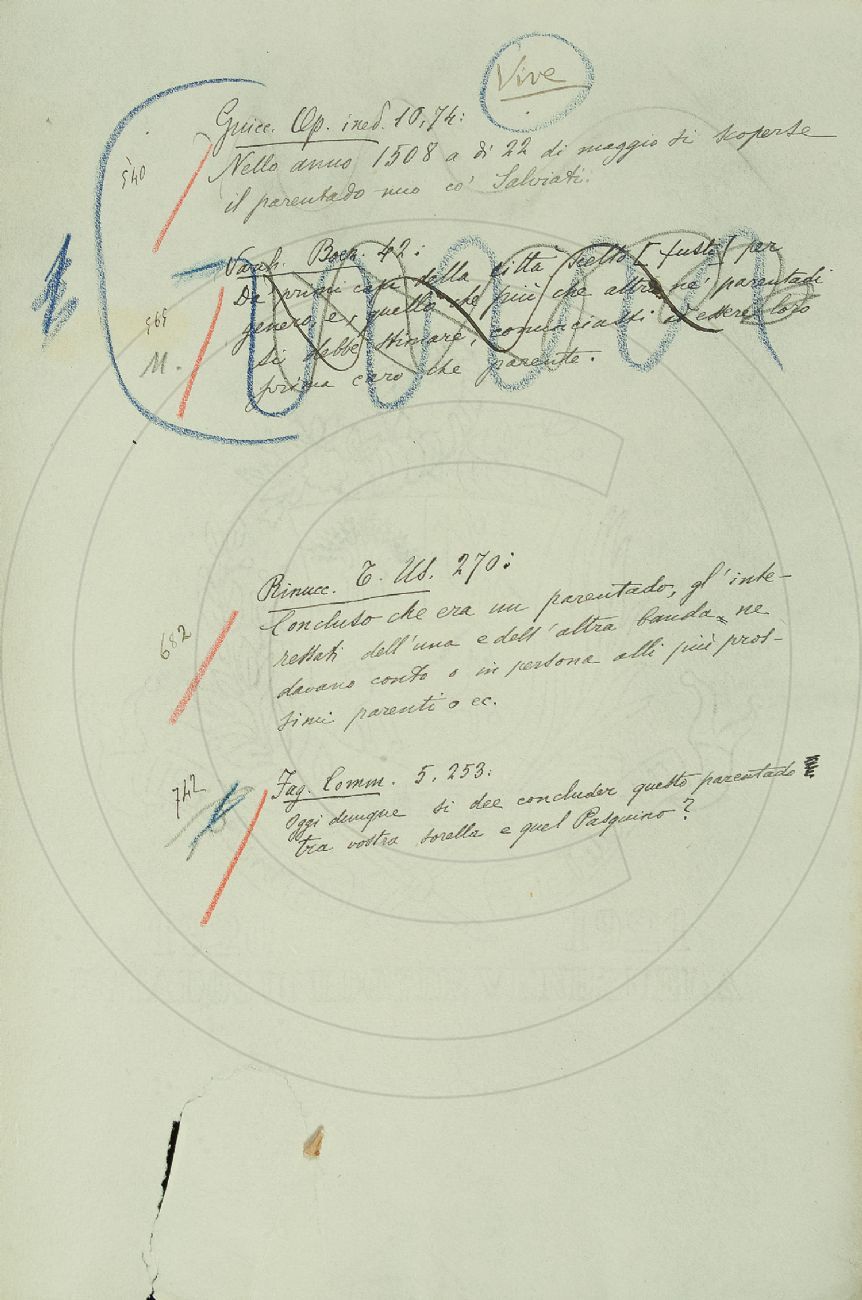 Vive
540
Guicc. Op. ined. 10, 74:
Nello anno 1508 a dì 22 di maggio si scoperse
il parentado mio co' Salviati.
569
M.
Varch. Boez. 42:
Da' primi capi della città scelto [fusti] per
genero, e, quello che più che altro ne' parentadi
si debbe stimare, cominciasti ad essere loro
prima caro che parente.
682
Rinucc. T. Us. 270:
Concluso che era un parentado, gl'inte-
ressati dell'una e dell'altra banda ne
davano conto o in persona alli più pros-
simi parenti o ec.
742
Fag. Comm. 5. 253:
Oggi dunque si dee concluder questo parentado
tra vostra sorella e quel Pasquino?